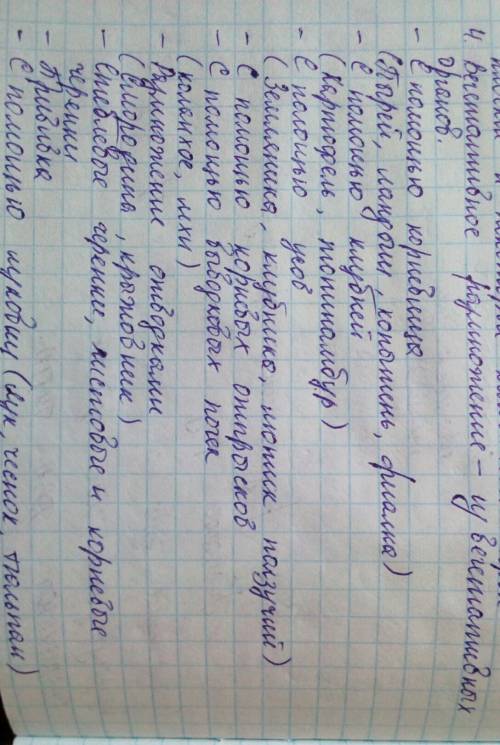 4. Вегетативное размножение – из вегетативных
органов.
- С помощью корневища
(Пырей, ландыш, копытень, фиалка)
- С помощью клубней
(Картофель, топинамбур)
- С помощью усов
(Земляника, клубника, лютик ползучий)
- С помощью корневых отпрысков
- С помощью выводковых почек
(каланхое, мхи)
- Размножение отводками
(Смородина, крыжовник)
- Стеблевые черенки, листовые и корневые
черенки
- Прививка
- С помощью луковиц (лук, чеснок, тюльпан)